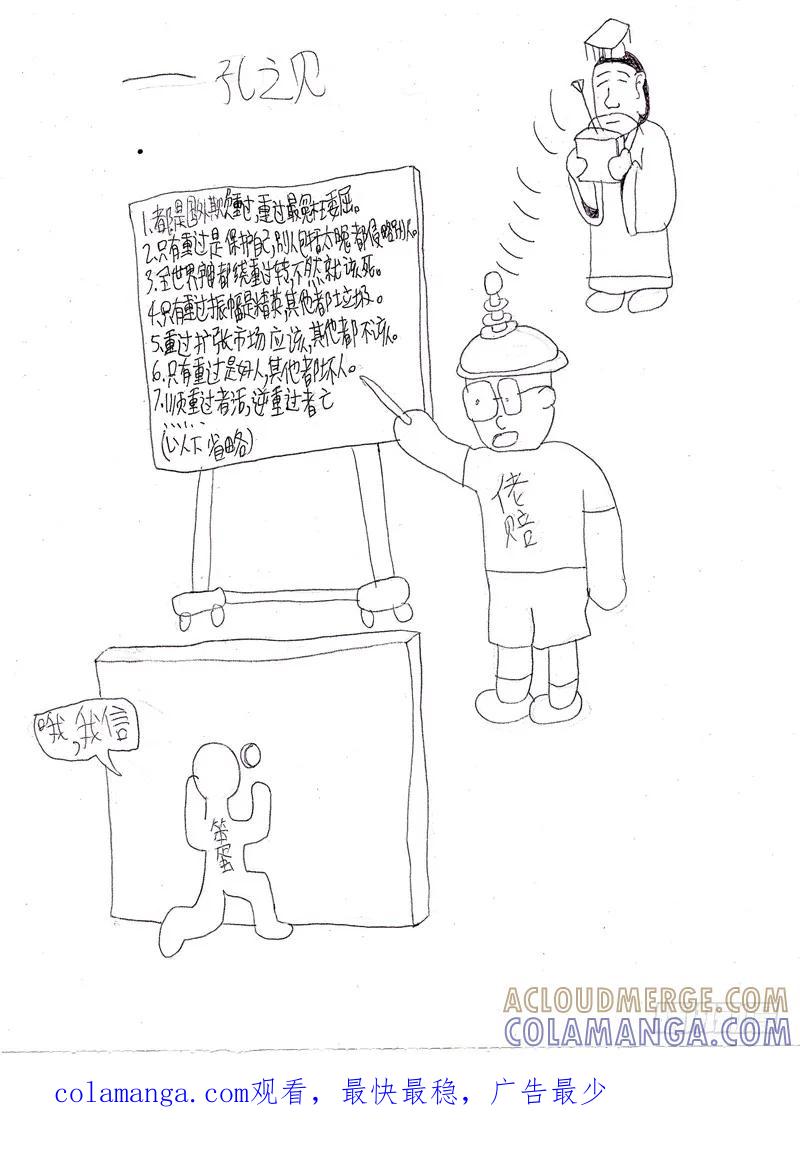 一孔之见
1.都是国外欺负重过,重过最冤枉委屈。
2.只有重过是保护自己,别人包括太聪都侵略别人。
3.全世界宇宙都绕重过转,不然就该死。
4.只有重过振幅是精英,其他都垃圾。
5.重过扩张市场应该,其他都不该。
6.只有重过是好人,其他都坏人。
7.顺重过者活,逆重过者亡
……
(以下省略)
佬
赔
哦,我信
笨
蛋
ACLOUDMERGE.COM
COLAMANGA.COM
colamanga.com观看，最快最稳，广告最少